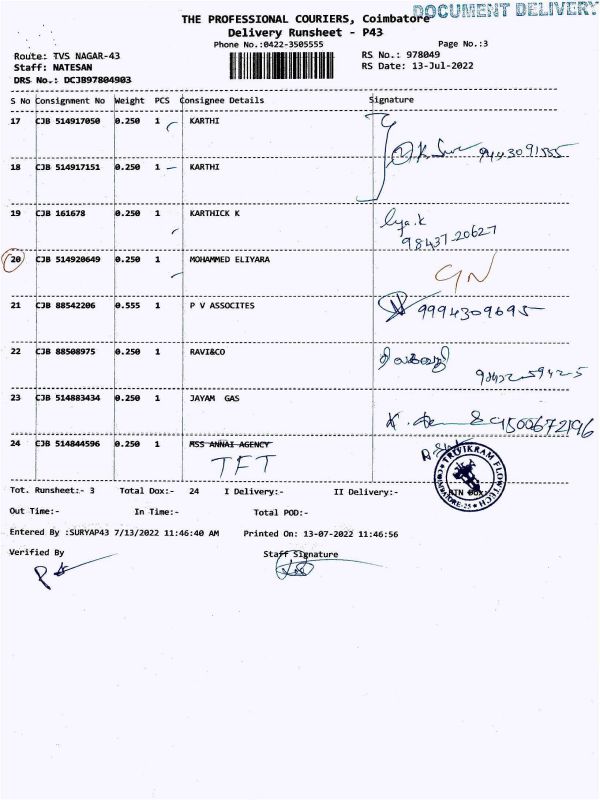 DOCUMENT DELIVERY
THE PROFESSIONAL COURIERS, Coimbatore
Delivery Runsheet - P43
Phone No.:0422-3505555
Page No.:3
Route: TVS NAGAR-43
RS No.: 978049
Staff: NATESAN
RS Date: 13-Jul-2022
DRS No.: DCJB97804903
S No Consignment No Weight PCS Consignee Details Signature
17 CJB 514917050 0.250 1 KARTHI
9443091555
18 CJB 514917151 0.250 1 KARTHI
19 CJB 161678 0.250 1 KARTHICK K
98437-20627
20 CJB 514920649 0.250 1 MOHAMMED ELIYARA
21 CJB 88542206 0.555 1 P V ASSOCITES 9994309695
22 CJB 88508975 0.250 1 RAVI&CO
23 CJB 514883434 0.250 1 JAYAM GAS
9500672196
24 CJB 514844596 0.250 1 MSS ANNAI AGENCY
TFT
TRIVIKRAM FLOWTECH
COIMBATORE-25
Tot. Runsheet:- 3 Total Dox:- 24 I Delivery:- II Delivery:- RTN Dox:-
Out Time:- In Time:- Total POD:-
Entered By :SURYAP43 7/13/2022 11:46:40 AM Printed On: 13-07-2022 11:46:56
Verified By Staff Signature